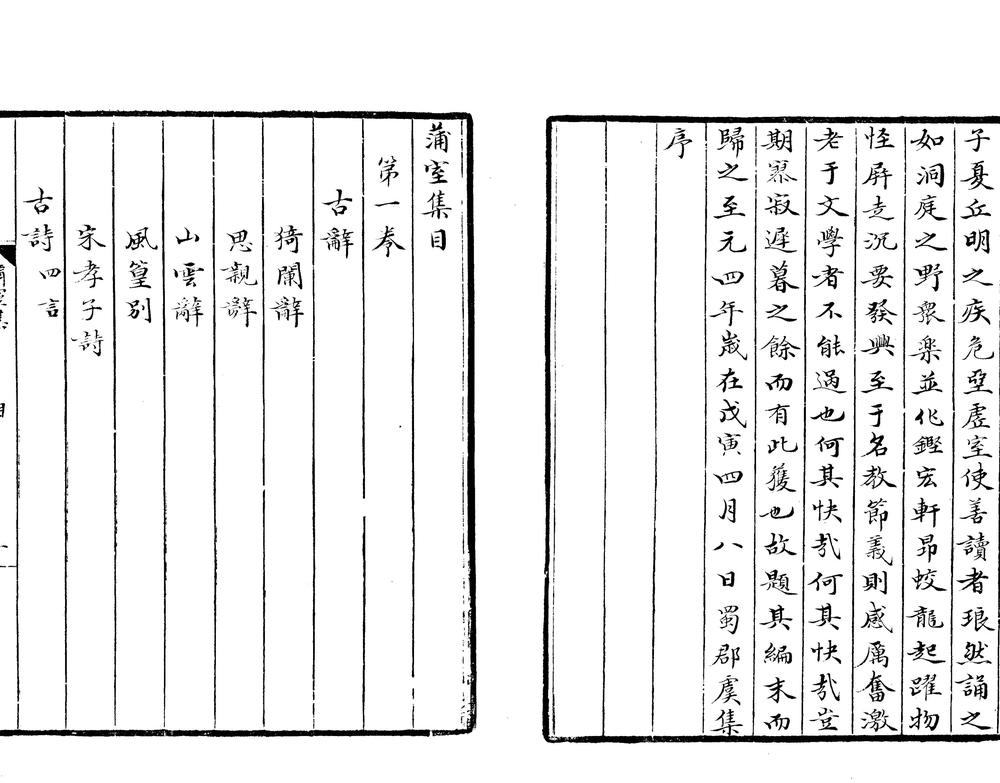 子夏丘明之疾危坐虛室使善讀者琅然誦之
如洞庭之野衆樂並作鏗宏軒昻蛟龍起躍物
怪屏走沉要發興至于名教節義則感厲奮激
老于文學者不能過也何其快㢤何其快㢤豈
期寂遲暮之餘而有此獲也故題其編末而
歸之至元四年歲在戊寅四月八日蜀郡虞集
序
蒲室集目
第一卷
古辭
猗蘭辭
思親辭
山雲辭
風篁别
宋孝子詩
古詩四言
目